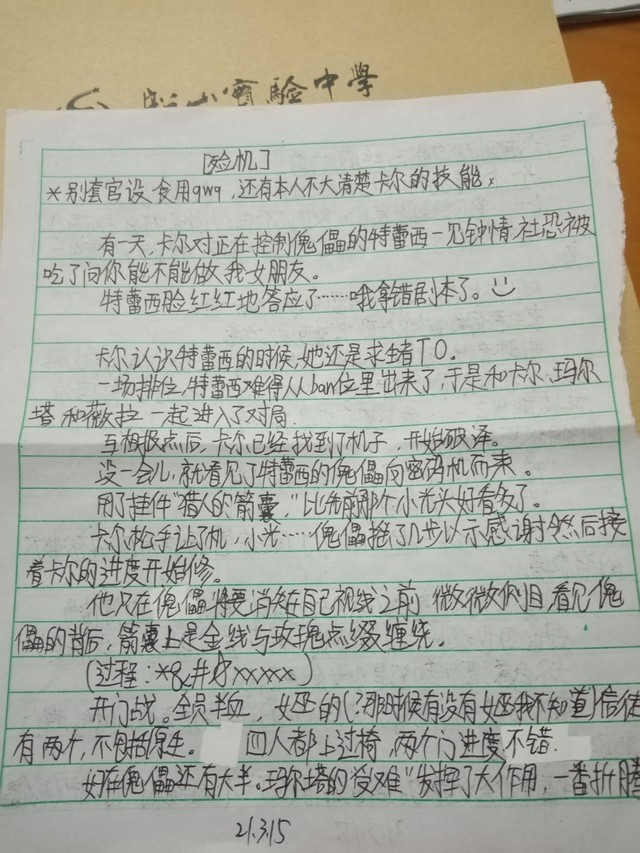 實驗中學
[验机]
*别套官设 食用qwq,还有本人不大清楚卡尔的技能x
有一天,卡尔对正在控制傀儡的特蕾西一见钟情,社恐被
吃了问你能不能做我女朋友。
特蕾西脸红红地答应了……哦拿错剧本了。
卡尔认识特蕾西的时候,她还是求生者T0。
一场排位,特蕾西难得从ban位里出来了,于是和卡尔、玛尔
塔和薇拉一起进入了对局.
互报报点后,卡尔已经找到了机子,开始破译。
没一会儿,就看见了特蕾西的傀儡向密码机而来。
用了挂件“猎人的箭囊,”比先前那个小光头好看多了。
卡尔松手让了机,小光……傀儡摇了几步以示感谢,然后接
着卡尔的进度开始修。
他只在傀儡将要消失在自己视线之前 微微侧目 看见傀
儡的背后,箭囊上是金线与玫瑰点缀缠绕。
(过程:*&#¥xxxxx)
开门战。全员半血,女巫的(?那时候有没有女巫我不知道)信徒
有两个,不包括原生。 四人都上过椅,两个门进度不错.
好在傀儡还有大半。玛尔塔的“受难”发挥了大作用,一番折腾
21.3.15